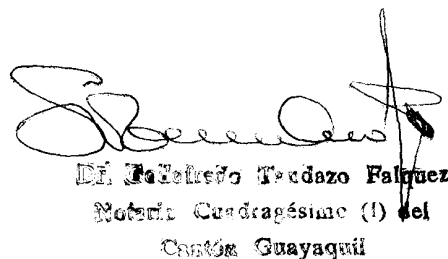 Dr. Tandazo Falquez
Notario Cuadragésimo (I) del
Cantón Guayaquil